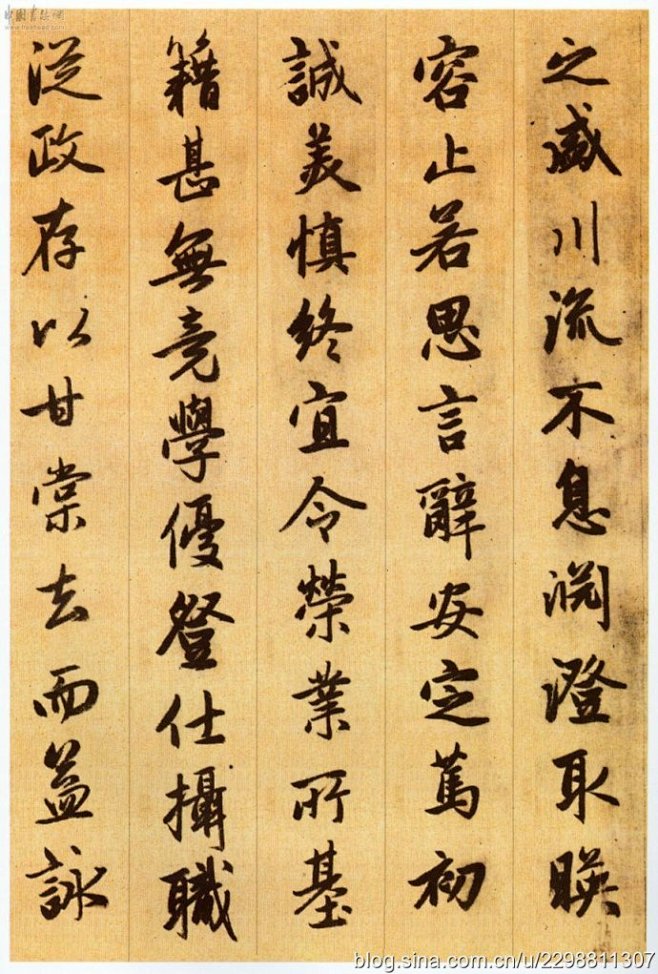 之盛川流不息渊澄取暎
容止若思言辭安定篤初
誠美慎終宜令榮業所基
籍甚無竟學優登仕攝職
從政存以甘棠去而益詠
blog.sina.com.cn/u/2298811307